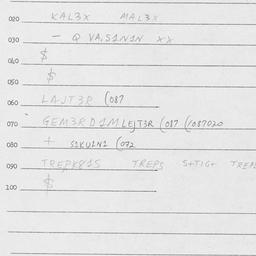 020 KAL3X MAL3X
030 - Q VA,S1N1N XX
040 $
050 $
060 LAJT3R (087
070 GEM3R D1M.LEJT3R (087 (087020
080 + S1KU1N1 (072
090 TREPK81S TREPS S+TIG+
100 $